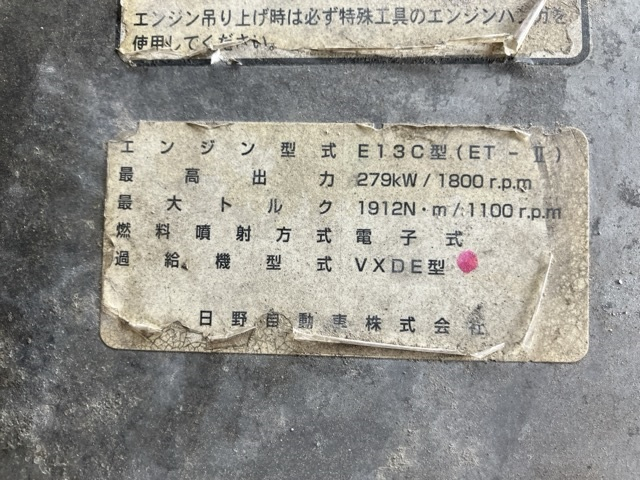 エンジン吊り上げ時は必ず特殊工具のエンジンハンガを
使用してください。
エンジン型式 E13C型(ET-Ⅱ)
最高出力 279kW/1800r.p.m
最大トルク 1912N・m/1100r.p.m
燃料噴射方式 電子式
過給機型式 VXDE型
日野自動車株式会社